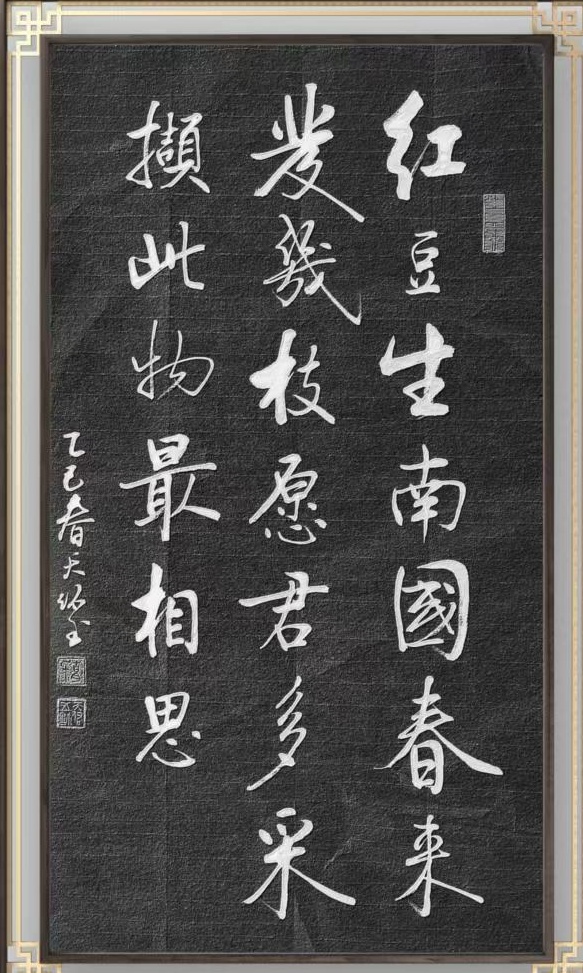 红豆生南國春来
发幾枝愿君多采
擷此物最相思
乙巳春天